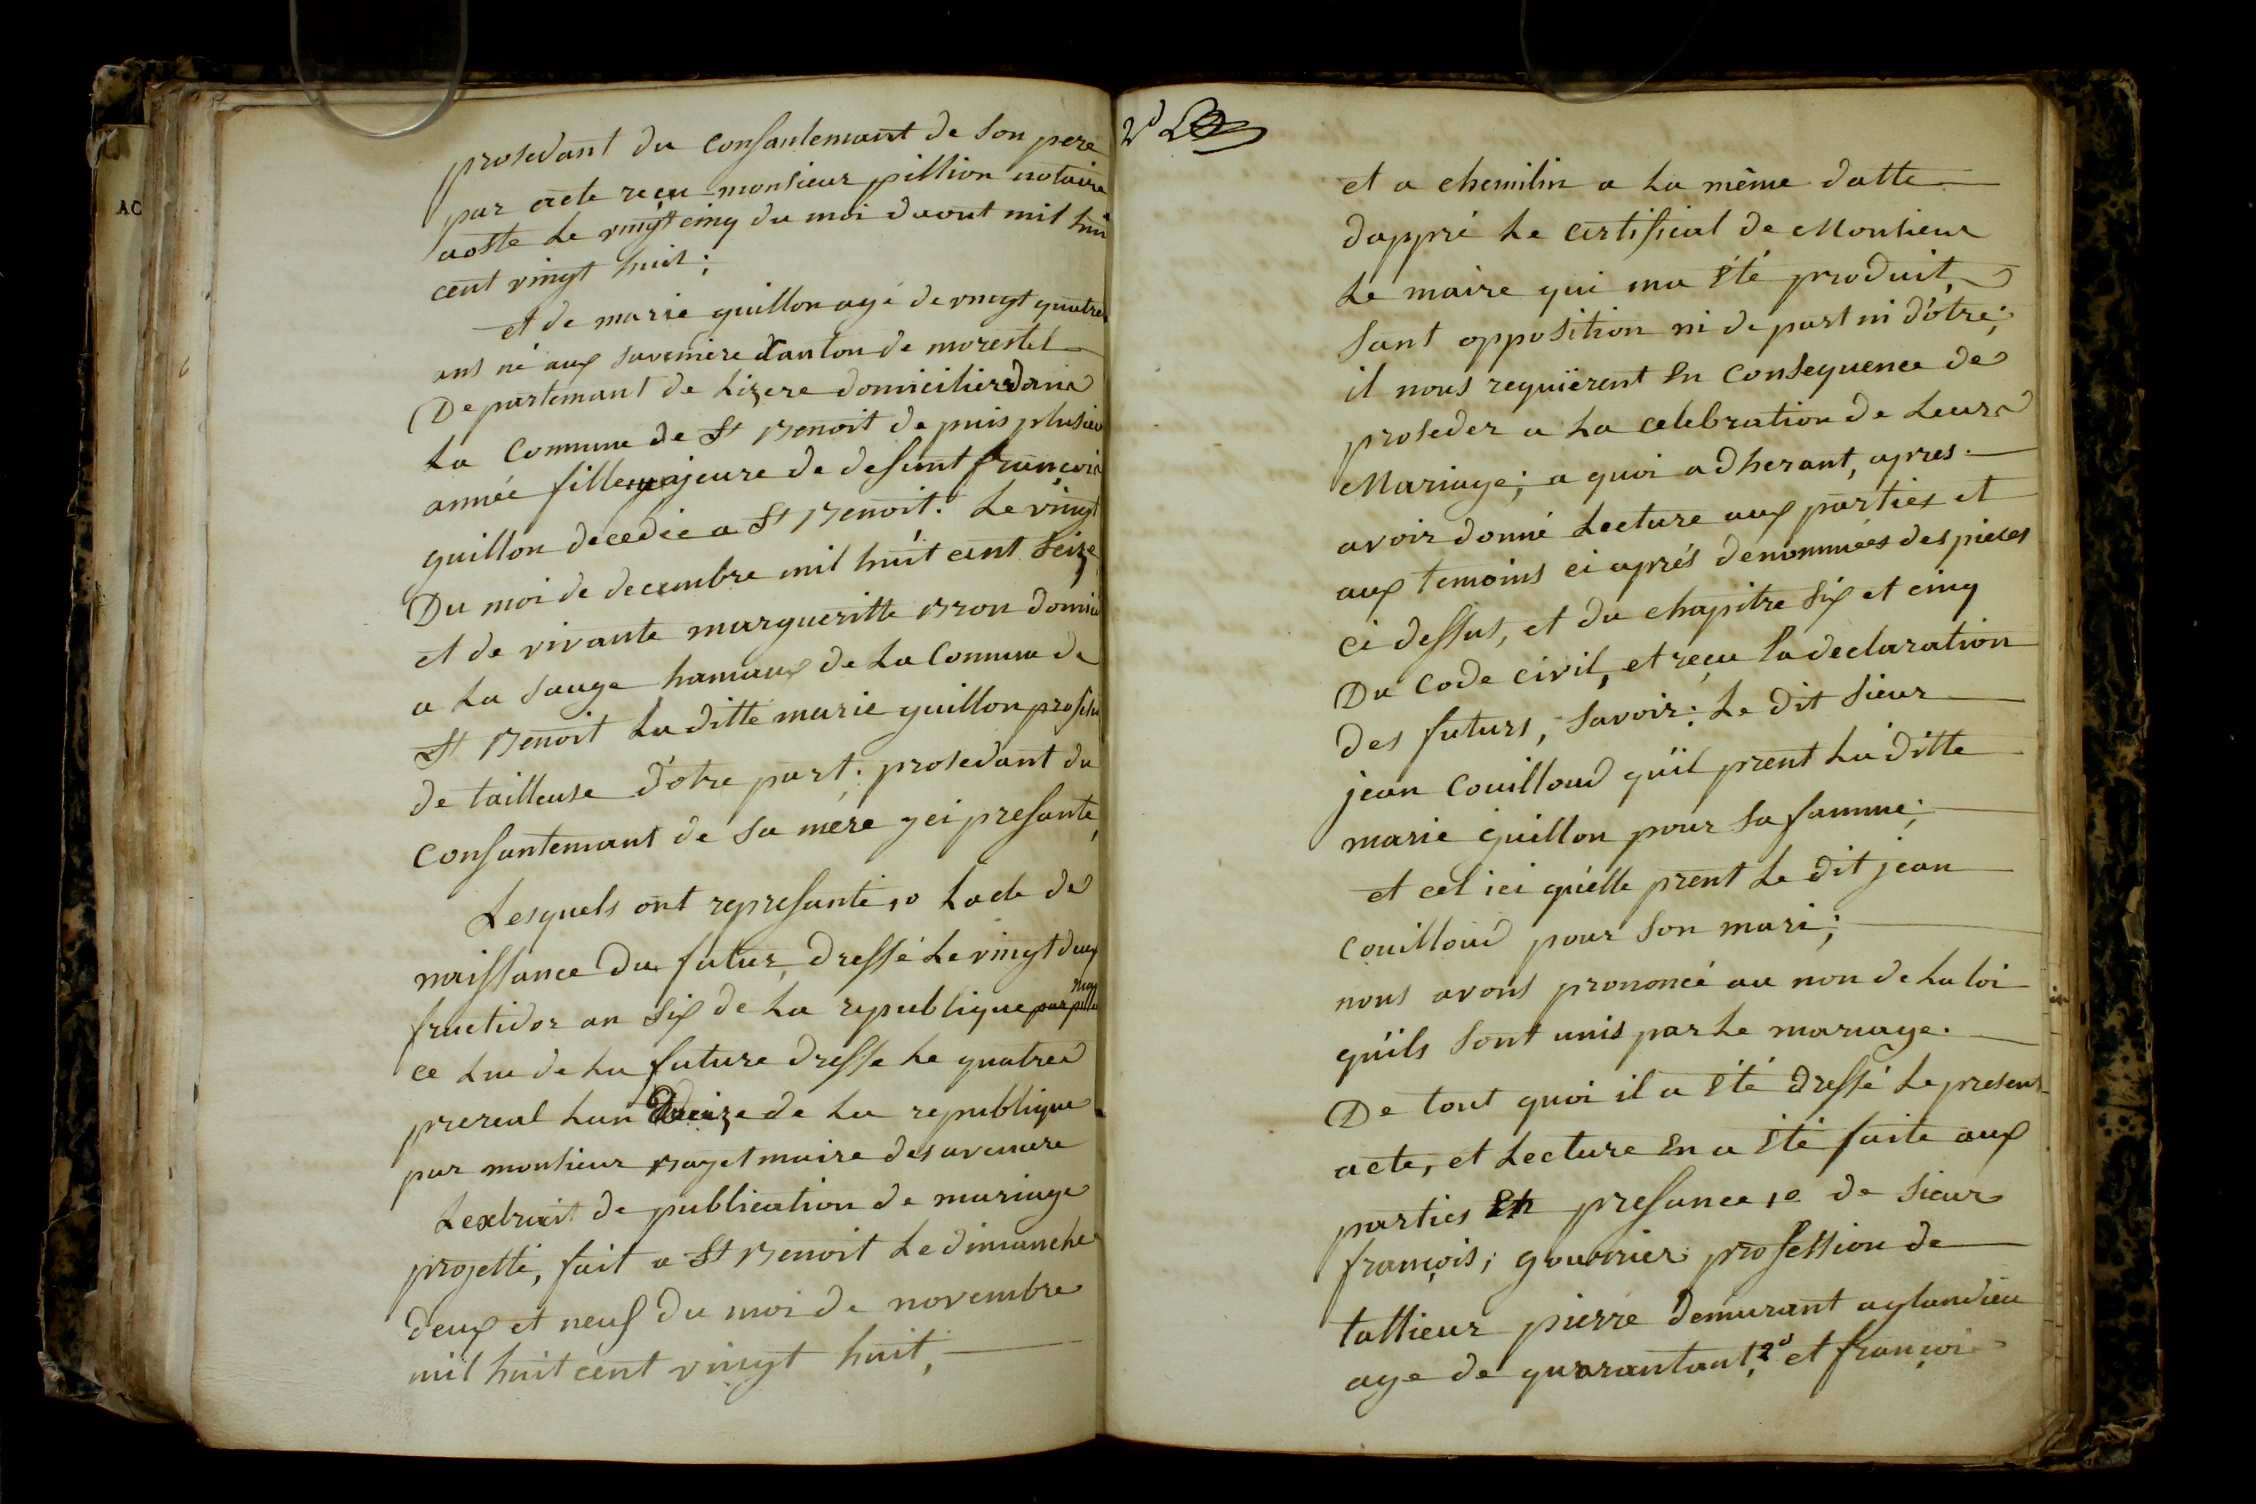 prosedant du consantemant de son pere
par acte reçu monsieur pillion notaire
aoste le vingt cinq du moi daout mil hui
cent vingt huit;
et de marie guillon agé de vingt quatre
ans né aux savenière canton de morestel
Departemant de Lizere domicilier dans
La Commune de St Benoit de puis plusieu
année fille majeure de defunt françois
guillon decedée a St Benoit. Le vingt
Du moi de decembre mil huit cent seize
et de vivante margueritte Bron domici
a La sauge hamaux de La Commune de
St Benoit La ditte marie guillon profesi
de tailleuse d'otre part; prosedant du
Consantemant de sa mére y ci presante,
Lesquels ont representé 10 Lacte de
naissance Du futur, Dressé Le vingt deux
fructidor an six de La republique
ce Lue de La future Dresse Le quatre
prereal Lan de La republique
par monsieur maire des aveniere
Lextrait de publication de mariage
projetté, fait a St Benoit Le dimanche
deux et neuf du moi de novembre
mil huit cent vingt huit,
2d
et a chemilin a La même datte
dappré Le certificat de Monsieur
Le maire qui ma été produit,
sant opposition ni de part ni d'ôtre;
il nous requièrent En Consequence de
proseder a La celebration de Leur
Mariage; a quoi adherant, apres
avoir donné Lecture aux parties et
aux temoins ci aprés denommées des pieces
ci dessus, et du chapitre six et cinq
Du Code civil, et reçu La declaration
des futurs, savoir: Le dit sieur
jean Couilloud qu'il prent La ditte
marie guillon pour sa famme;
et cel ici quélle prent Le dit jean
Couilloud pour son mari;
nous avons prononcé au non de La loi
qu'ils sont unis par Le mariage.
De tout quoi il a été dressé Le present
acte, et Lecture En a été faite aux
parties En presance 1e de sieur
françois; gouvrier profession de
tallieur pierre demurant aglandieu
age de quarantant, 2d et françoi